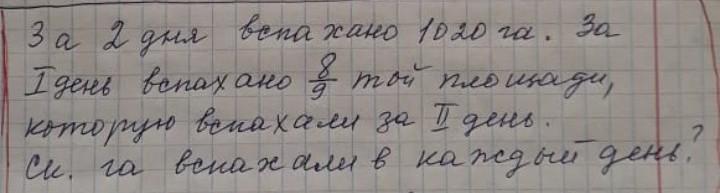 За 2 дня вспахано 1020 га. За
I день вспахано 8/9 той площади,
которую вспахали за II день.
Ск. га вспахали в каждый день?